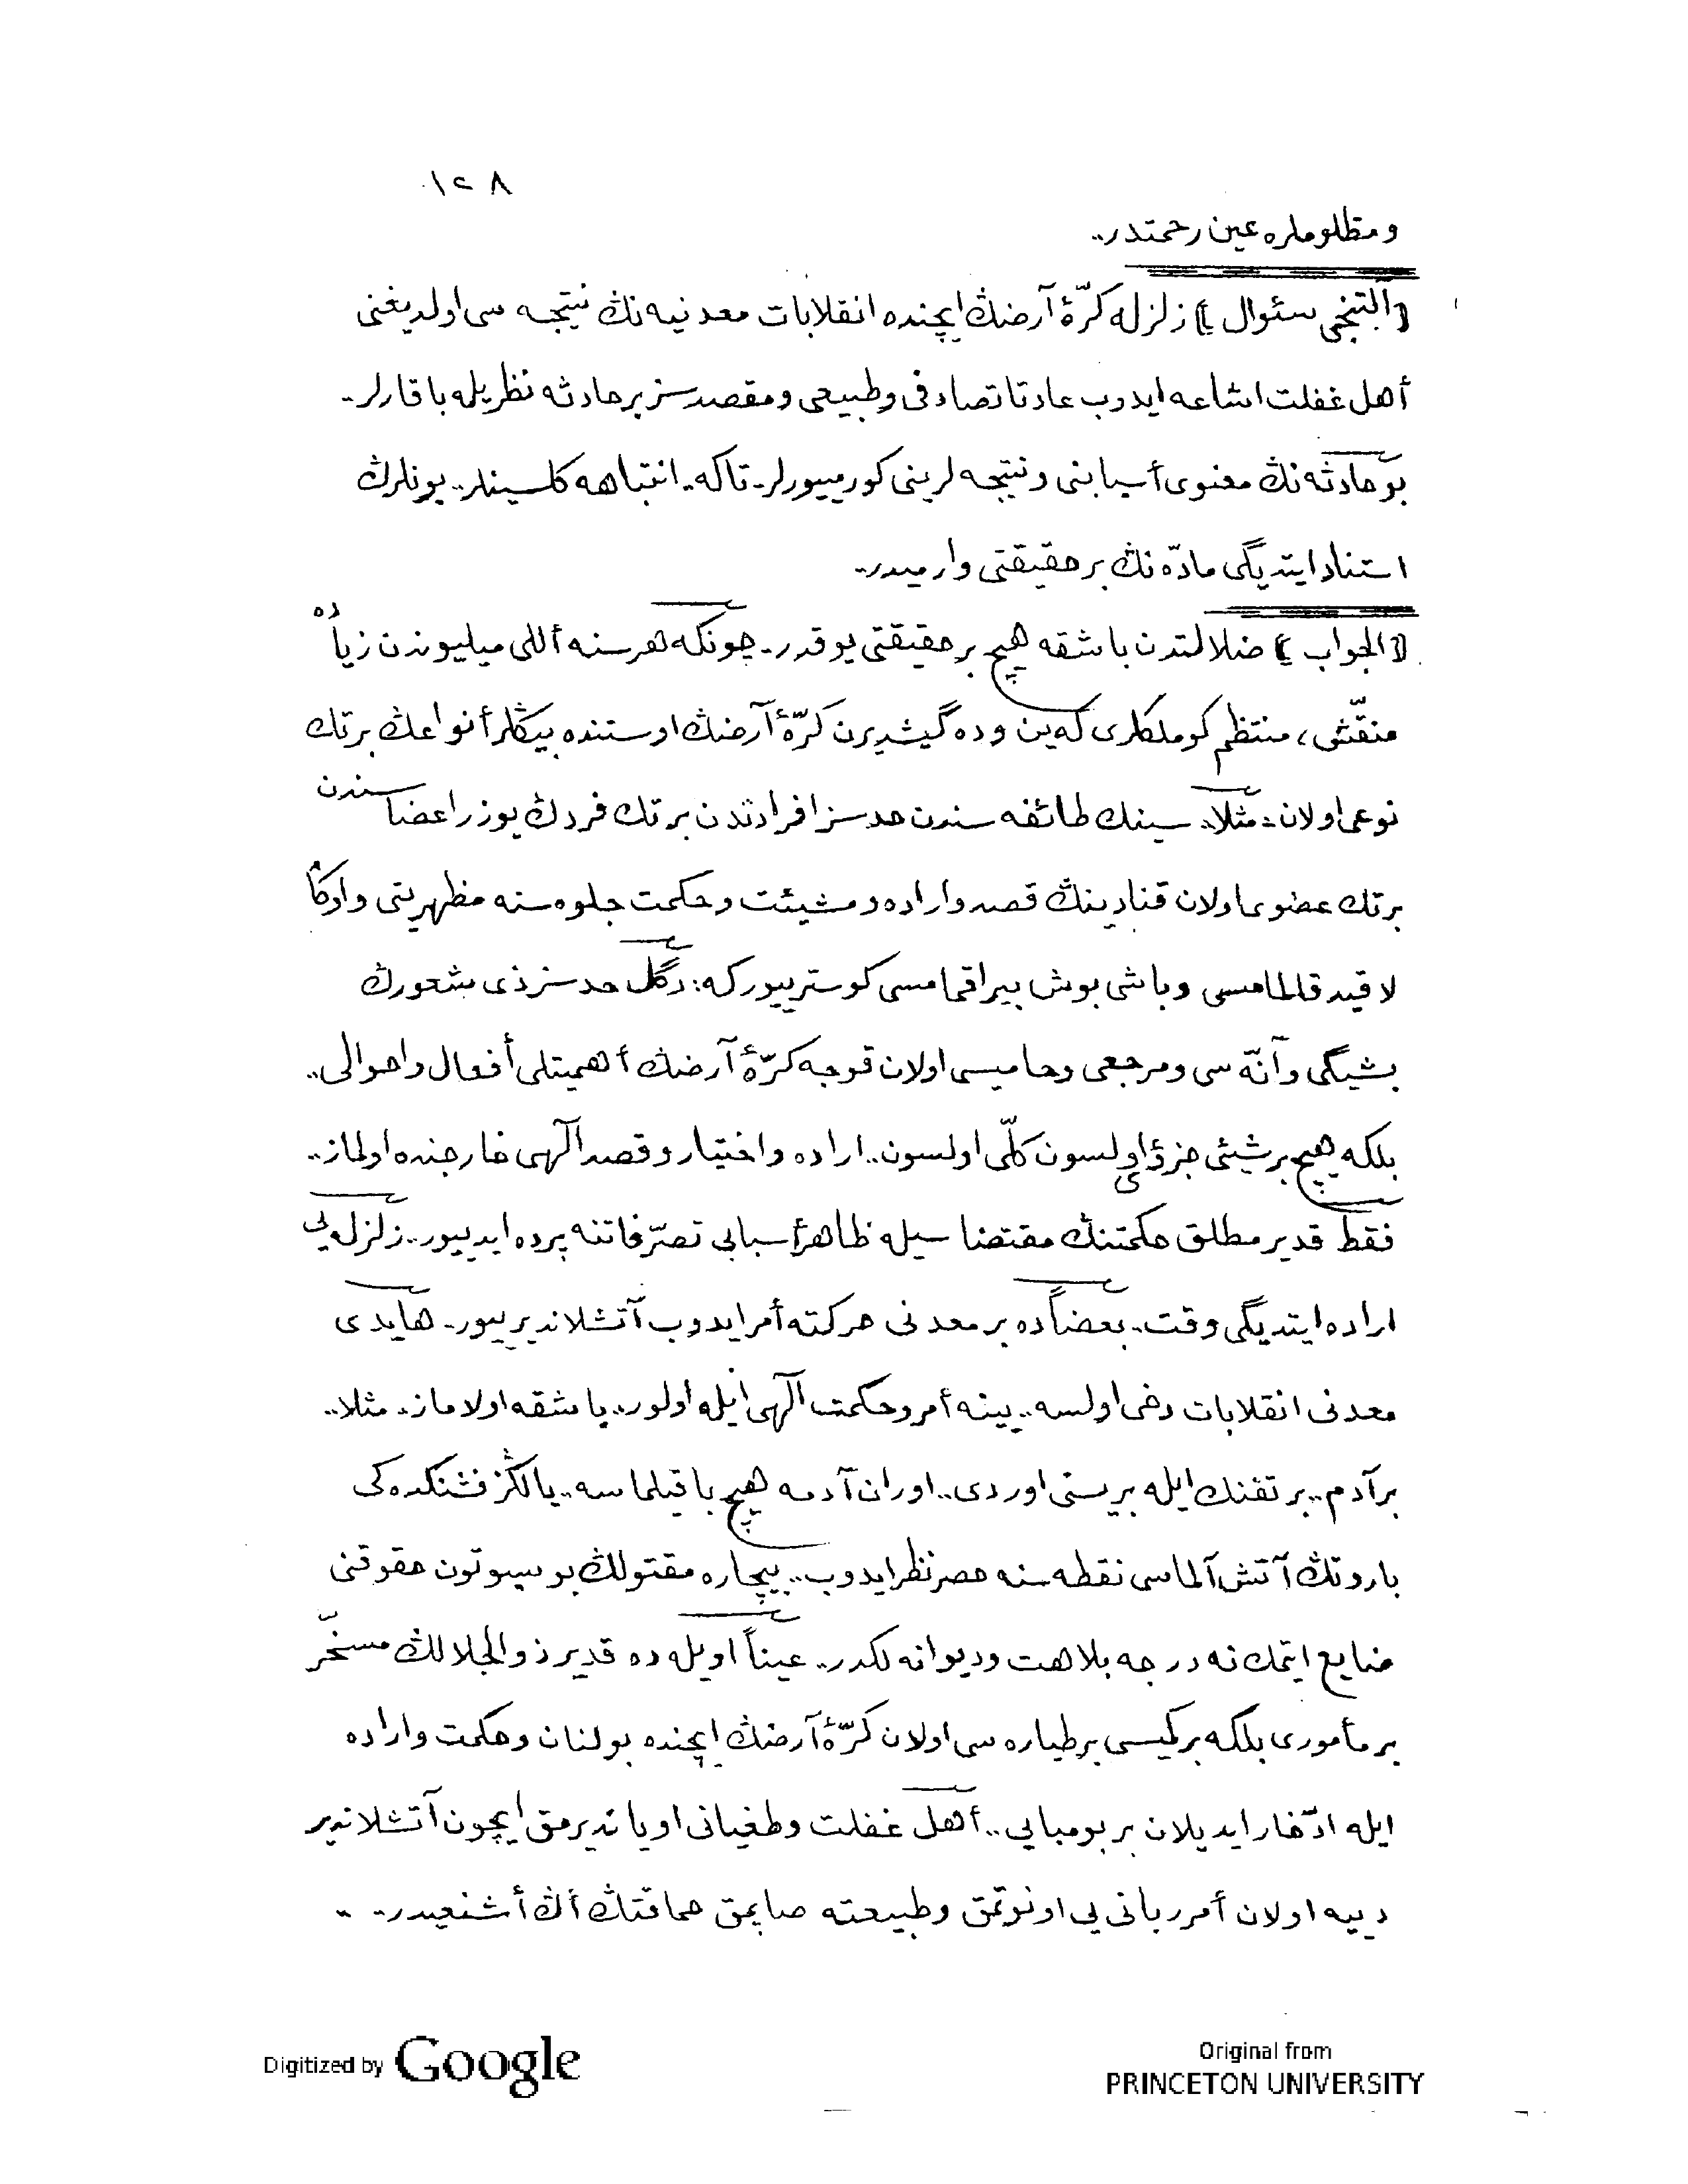 ١٢٨
و مظلوملره عين رحمتدر..
﴿آلتنجى سئوال﴾ زلزله كرّۀ آرضڭ ايچنده انقلابات معدنيه نڭ نتيجه سى اولديغنى
أهل غفلت اشاعه ايدوب عادتا تصادفى وطبيعى ومقصدسز برحادثه نظريله باقارلر.
بوحادثه نڭ معنوى أسبابنى ونتيجه لرينى كورمييورلر. تاكه. انتباهه كلسينلر.. بونلرڭ
استناد ايتديگى مادّه نڭ برحقيقتى وارميدر.
﴿الجواب﴾ ضلالتدن باشقه هيچ برحقيقتى يوقدر. چونكه هرسنه أللى ميليوندن زياده
منقّش، منتظم كوملكلرى كەين وده گيشديرن كرّۀ آرضڭ اوستنده بيڭلر أنواعڭ برتك
نوعى اولان. مثلا.. سينك طائفه سندن حدسز افرادندن برتك فردڭ يوزر اعضاسندن
برتك عضوى اولان قنادينڭ قصد واراده ومشيئت وحكمت جلوه سنه مظهريتى واوڭا
لاقيد قالمامسى وباشى بوش بيراقمامسى كوسترييوركه: دگل حدسز ذى شعورڭ
بشيگى وآنّه سى ومرجعى وحاميسى اولان قوجه كرّۀ آرضڭ أهميتلى أفعال واحوالى..
بلكه هيچ برشيئى جزؤى اولسون كلّى اولسون.. اراده واختيار وقصد آلهى خارجنده اولماز..
فقط قدير مطلق حكمتنڭ مقتضاسيله ظاهر أسبابى تصرّفاتنه پرده ايدييور.. زلزله يى
اراده ايتديگى وقت. بعضاً ده برمعدنى حركته أمر ايدوب آتشلانديرييور. هايدى
معدنى انقلابات دخى اولسه.. يينه أمر وحكمت آلهى ايله اولور.. باشقه اولاماز. مثلا..
برآدم.. برتفنك ايله بريسنى اوردى.. اوران آدمه هيچ باقيلماسه.. يالڭز فشنكده كى
باروتڭ آتش آلماسى نقطه سنه حصر نظر ايدوب.. بيچاره مقتولڭ بوسبوتون حقوقنى
ضايع ايتمك نه درجه بلاهت وديوانه لكدر.. عيناً اويله ده قدير ذوالجلالڭ مسخّر
بر مأمورى بلكه بركميسى برطياره سى اولان كرّۀ آرضڭ ايچنده بولنان وحكمت واراده
ايله ادّخار ايديلان بر بومبايى.. أهل غفلت وطغيانى اوياندیرمق ايچون آتشلاندير
دييه اولان أمر ربانى يى اونوتمق وطبيعته صاپمق حماقتڭ أڭ أشنعيدر..
Digitized by Google
Original from
PRINCETON UNIVERSITY